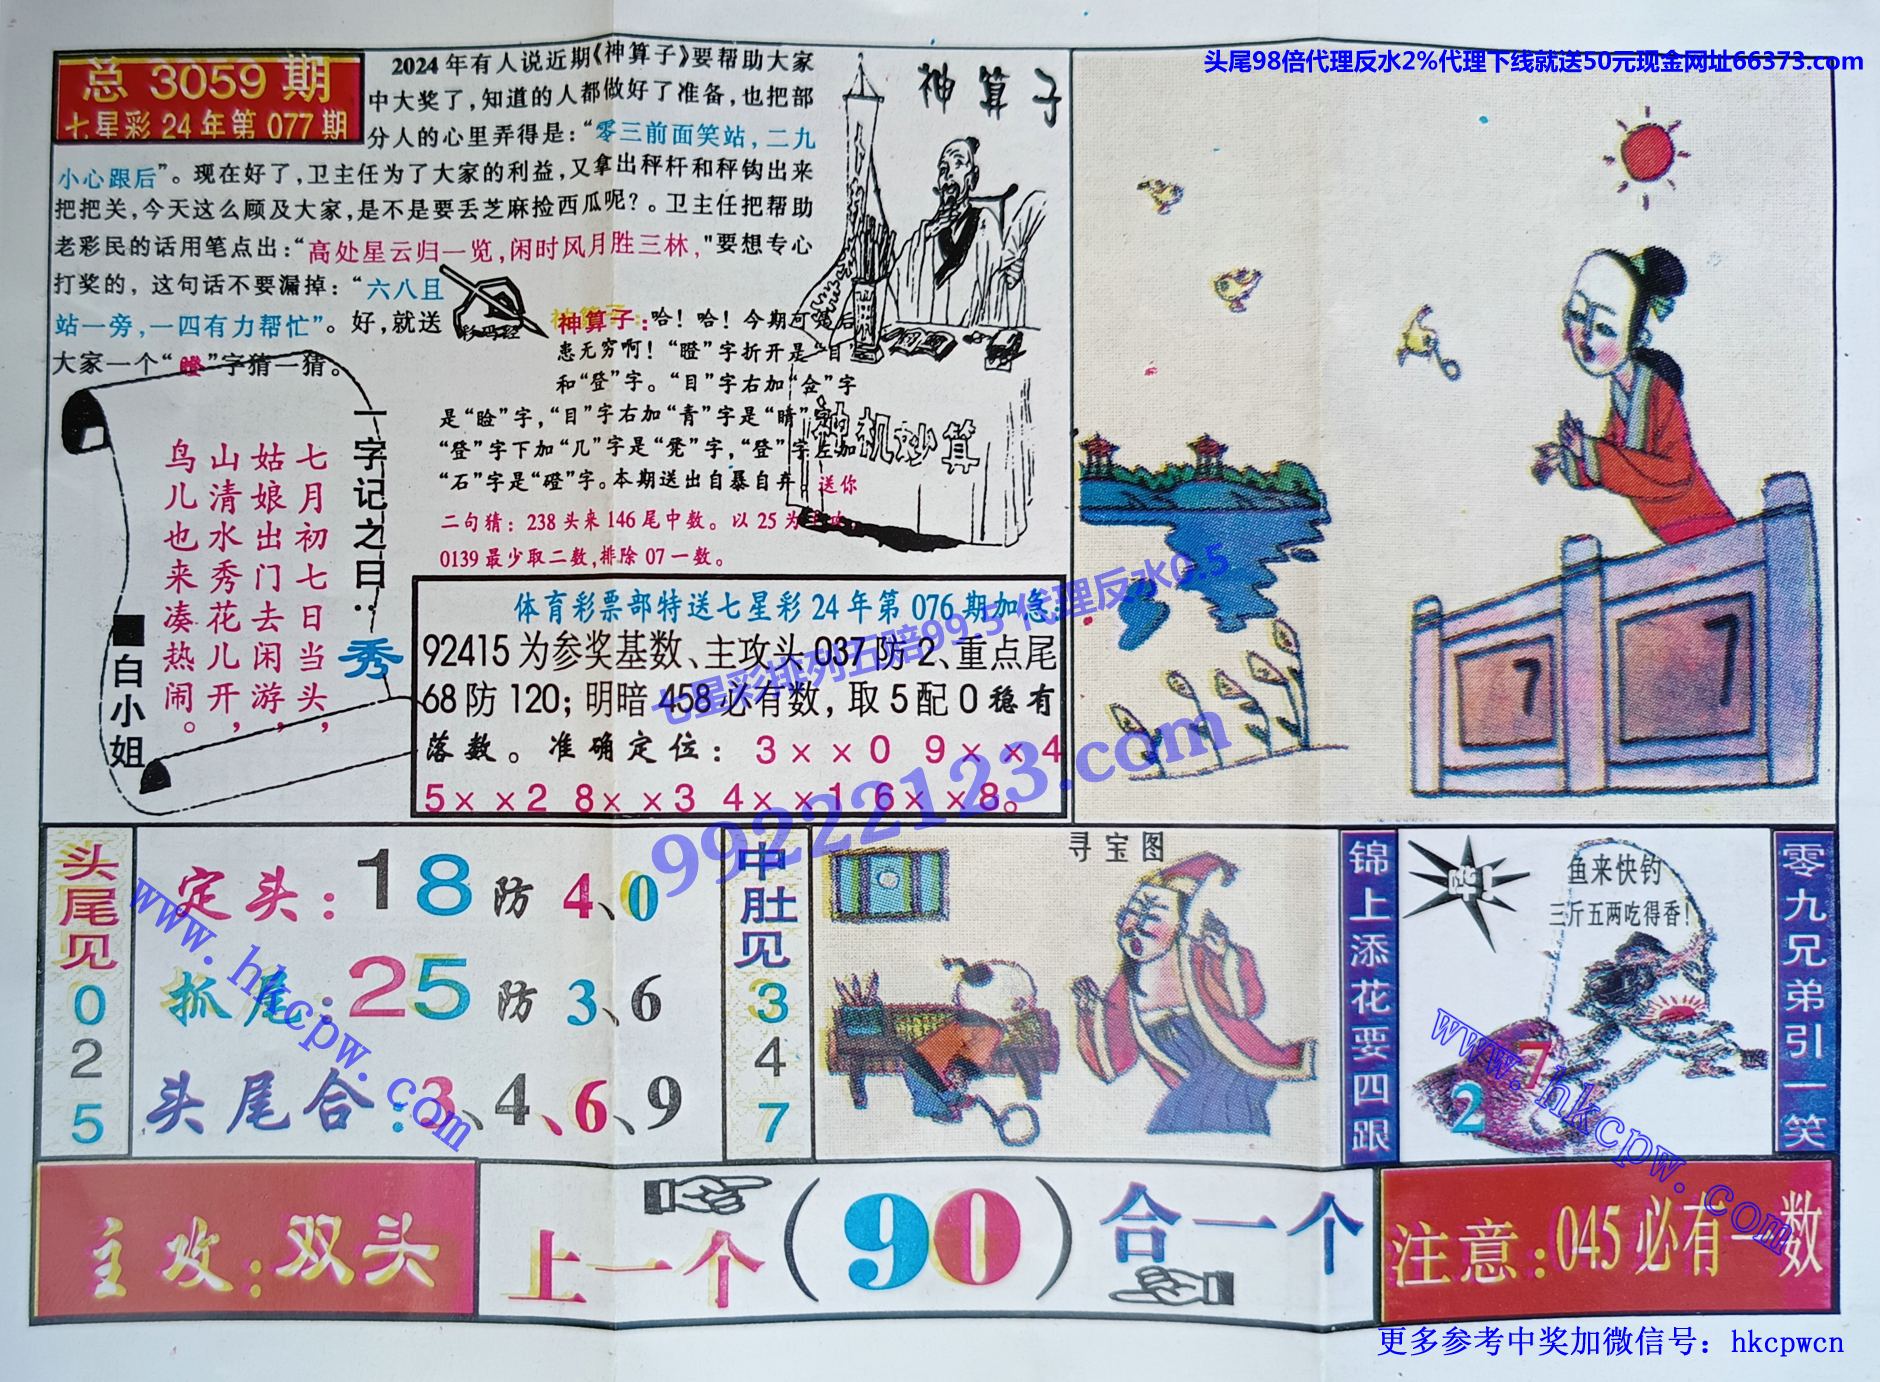 头尾98倍代理反水2%代理下线就送50元现金网址66373.com
总 3059 期
七星彩 24 年第 077 期
2024年有人说近期《神算子》要帮助大家
中大奖了,知道的人都做好了准备,也把部
分人的心里弄得是:“零三前面笑站,二九
小心跟后”。现在好了,卫主任为了大家的利益,又拿出秤杆和秤钩出来
把把关,今天这么顾及大家,是不是要丢芝麻捡西瓜呢?。卫主任把帮助
老彩民的话用笔点出:“高处星云归一览,闲时风月胜三林,"要想专心
打奖的, 这句话不要漏掉: “六八且
站一旁,一四有力帮忙”。好,就送
大家一个“瞪”字猜一猜。
彩码经
神算子
神机妙算
神算子:哈! 哈! 今期可是后
患无穷啊! “瞪”字折开是“目”
和“登”字。“目”字右加“佥”字
是“睑”字, “目”字右加“青”字是“睛”字,
“登”字下加“几”字是“凳”字, “登”字左加
“石”字是“磴”字。本期送出自暴自弃。送你
二句猜: 238 头来 146 尾中数。以 25 为主攻,
0139 最少取二数,排除 07 一数。
一字记之曰: 秀
七月初七日当头,
姑娘出门去闲游,
山清水秀花儿开,
鸟儿也来凑热闹。
■白小姐
体育彩票部特送七星彩 24 年第 076 期加急:
92415 为参奖基数、主攻头 037 防 2、重点尾
68 防 120; 明暗 458 必有数, 取 5 配 0 稳有
落数。准确定位: 3××0 9××4
5××2 8××3 4××1 6××8。
七星彩排列五赔99.5 代理反水0.5
99222123.com
7 7
头尾见 0 2 5
定头: 18 防 4、0
抓尾: 25 防 3、6
头尾合: 3、4、6、9
www.hkcpw.com
中肚见 3 4 7
寻宝图
锦上添花要四跟
哗!
鱼来快钓
三斤五两吃得香!
7
2
www.hkcpw.com
零九兄弟引一笑
主攻: 双头
上一个 (90) 合一个
注意: 045 必有一数
更多参考中奖加微信号: hkcpwcn